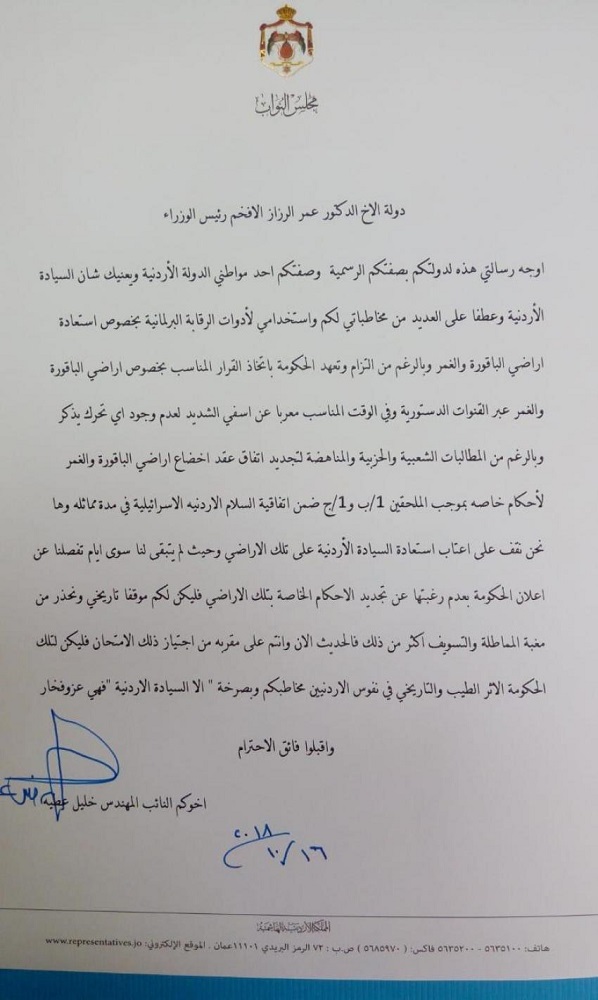 مجلس النواب
دولة الاخ الدكتور عمر الرزاز الافخم رئيس الوزراء
اوجه رسالتي هذه لدولتكم بصفتكم الرسمية وصفتكم احد مواطني الدولة الأردنية ويعنيك شان السيادة
الأردنية وعطفا على العديد من مخاطباتي لكم واستخدامي لأدوات الرقابة البرلمانية بخصوص استعادة
اراضي الباقورة والغمر وبالرغم من التزام وتعهد الحكومة باتخاذ القرار المناسب بخصوص اراضي الباقورة
والغمر عبر القنوات الدستورية وفي الوقت المناسب معربا عن اسفي الشديد لعدم وجود اي تحرك يذكر
وبالرغم من المطالبات الشعبية والحزبية والمناهضة لتجديد اتفاق عقد اخضاع اراضي الباقورة والغمر
لأحكام خاصه بموجب الملحقين 1/ب و1/ج ضمن اتفاقية السلام الاردنيه الاسرائيلية في مدة مماثله وها
نحن نقف على اعتاب استعادة السيادة الأردنية على تلك الاراضي وحيث لم يتبقى لنا سوى ايام تفصلنا عن
اعلان الحكومة بعدم رغبتها عن تجديد الاحكام الخاصة بتلك الاراضي فليكن لكم موقفا تاريخي ونحذر من
مغبة المماطلة والتسويف اكثر من ذلك فالحديث الان وانتم على مقربه من اجتياز ذلك الامتحان فليكن لتلك
الحكومة الاثر الطيب والتاريخي في نفوس الاردنيين مخاطبكم وبصرخة " الا السيادة الاردنية "فهي عزوفخار
واقبلوا فائق الاحترام
اخوكم النائب المهندس خليل عطيه
٢٠١٨/١٠/١٦
المملكة الأردنية الهاشمية
هاتف: ٥٦٣٥١٠٠ - ٥٦٣٥٢٠٠ فاكس: ( ٥٦٨٥٩٧٠ ) ص.ب : ٧٢ الرمز البريدي ١١١٠١عمان . الموقع الإلكتروني: www.representatives.jo